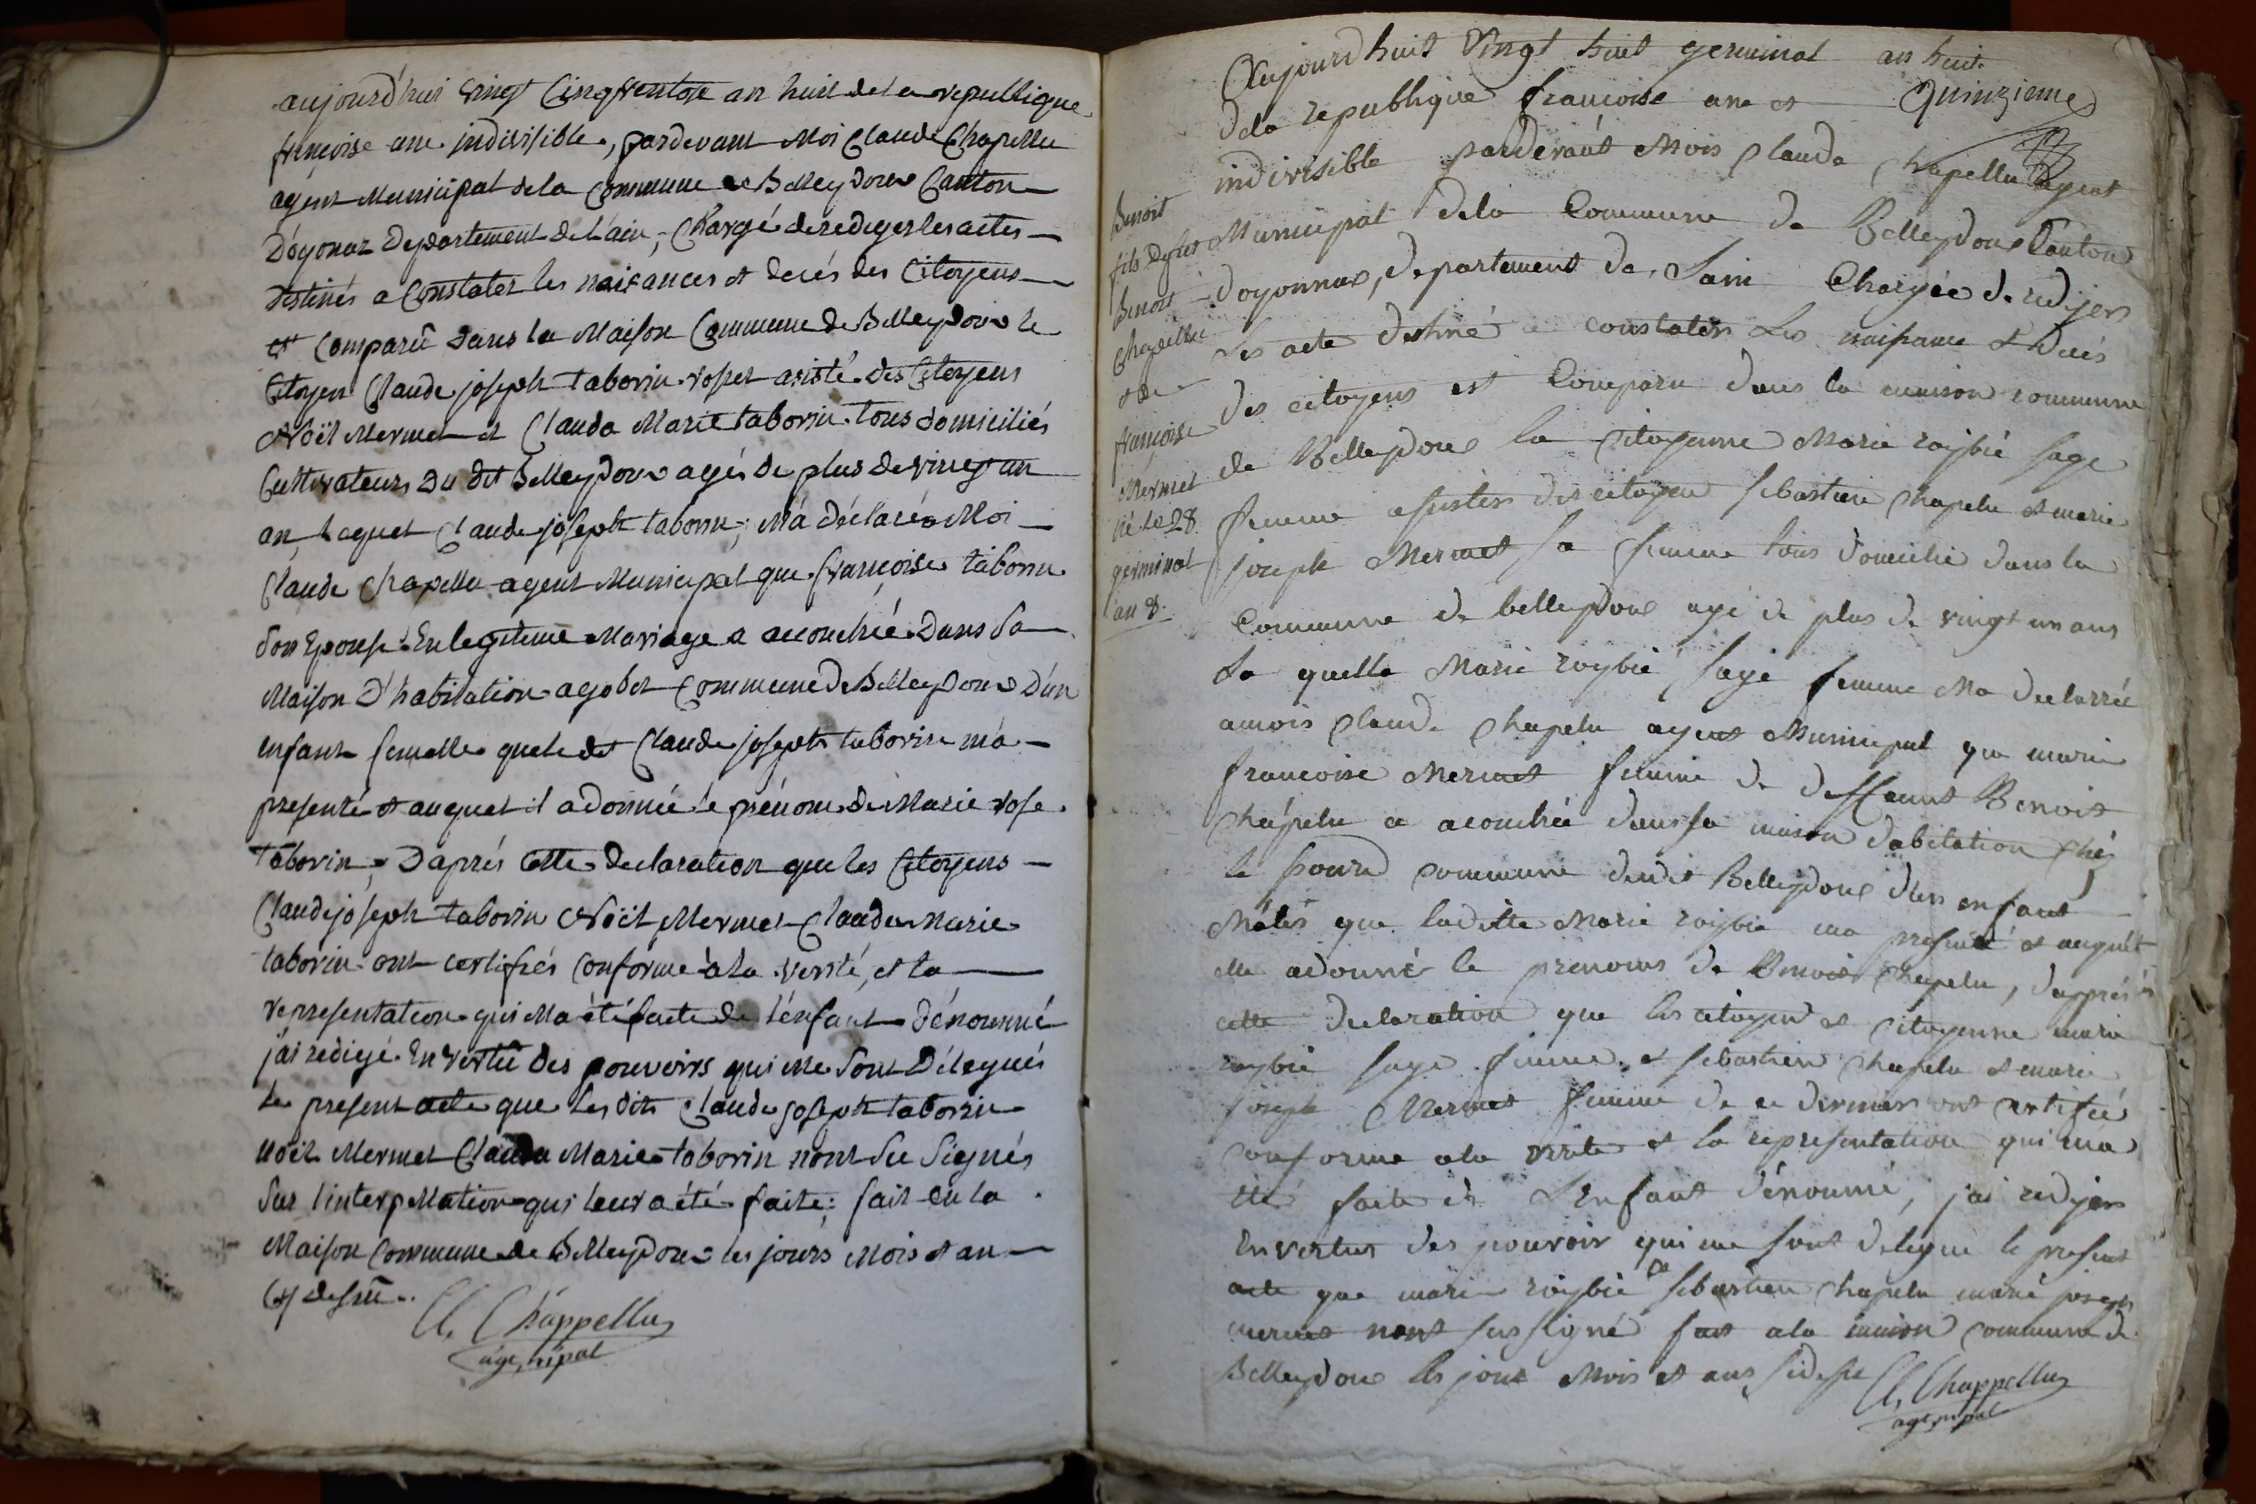 aujourd'hui vingt Cinq ventose an huit de la republique
françoise une indivisible, pardevant Moi Claude Chapellu
agent Municipal de la Commune de Belleydoux Canton
D'oyonax Departement de l'ain, Chargé de rediger les actes
destinés a Constater les naisances et decés des Citoyens
est Comparû dans la Maison Commune de Belleydoux le
Citoyen Claude joseph taborin rosset asisté des Citoyens
Noël Mermet et Claude Marie taborin tous domiciliés
Cultivateurs du dit Belleydoux agés de plus de vingt un
an, Lequel Claude joseph taborin, M'a déclaré a Moi
Claude Chapellu agent Municipal que françoise taborin
son Epouse En legitime Mariage a accouchée dans sa
Maison D'habitation a gobet Commune de Belleydoux D'un
enfant femelle que le dit Claude joseph taborin m'a
presenté et auquel il a donnée le prénom de Marie rose
taborin, D'aprés cette declaration que les Citoyens
Claude joseph taborin Noël Mermet Claude Marie
taborin ont certifiés conforme à la verité, et la
representation qui M'a été faite de l'enfant dénommé
j'ai redigé En vertû des pouvoirs qui me sont Délegués
le present acte que les dits Claude joseph taborin
noël Mermet Claude Marie taborin n'ont su Signés
sur l'interpellation qui leur a été faite: fait en la
Maison Commune de Belleydoux les jours Mois et an
Cy desûs.
Cl. Chappellu
age, nipal
Aujourd huit Vingt huit germinal an huit
dela republique francoise une et Quinzieme
indivisible pardevant Mois Claude Chapellu agent
Municipal dela Commune de Belleydoux Canton
doyonnax, departement de Lain Chargée de redijer
Les acte destiné a constater Les naisance et Decés
des citoyens est Comparu dans la maison commune
de Belleydoux la Citoyenne Marie roybié sage
femme asister des citoyen sebastien Chapelu et marie
joseph Mermet sa femme tous domicilié dans la
Commune de belleydoux agé de plus de vingt un ans
La quelle Marie roybié sage femme Ma declarrée
amois Claude Chapelu agent Municipal que marie
francoise Mermet femme de deffeunt Benoit
Chapelu a acouchée dans sa maison dabitation Chéz
le pours commune dudit Belleydoux d'un enfant
Mâles que laditte Marie roybié ma presenté et auquél
elle adonnér le prenoms de Benoit Chapelu, dapprés
cette declaration que les citoyen et citoyenne marie
roybié sage femme et sebastien Chapelu et marie
joseph Mermet femme de ce dernier ont certifié
conforme ala vérite et la representation qui ma
été faite de L'Enfant dénommé, j'ai redijer
En vertus des pouvoir qui me sont delegué le present
acte que marie roybié et sebastien Chapelu marie joseph
mermet nont sus signé fait ala maison commune de
Belleydoux les jour Mois et ans sidesus
Cl. Chappellu
age, nipal
Benoit
fils de feu
Benoit
Chapellu
et de
françoise
Mermet
né le 28
germinal
an 8.